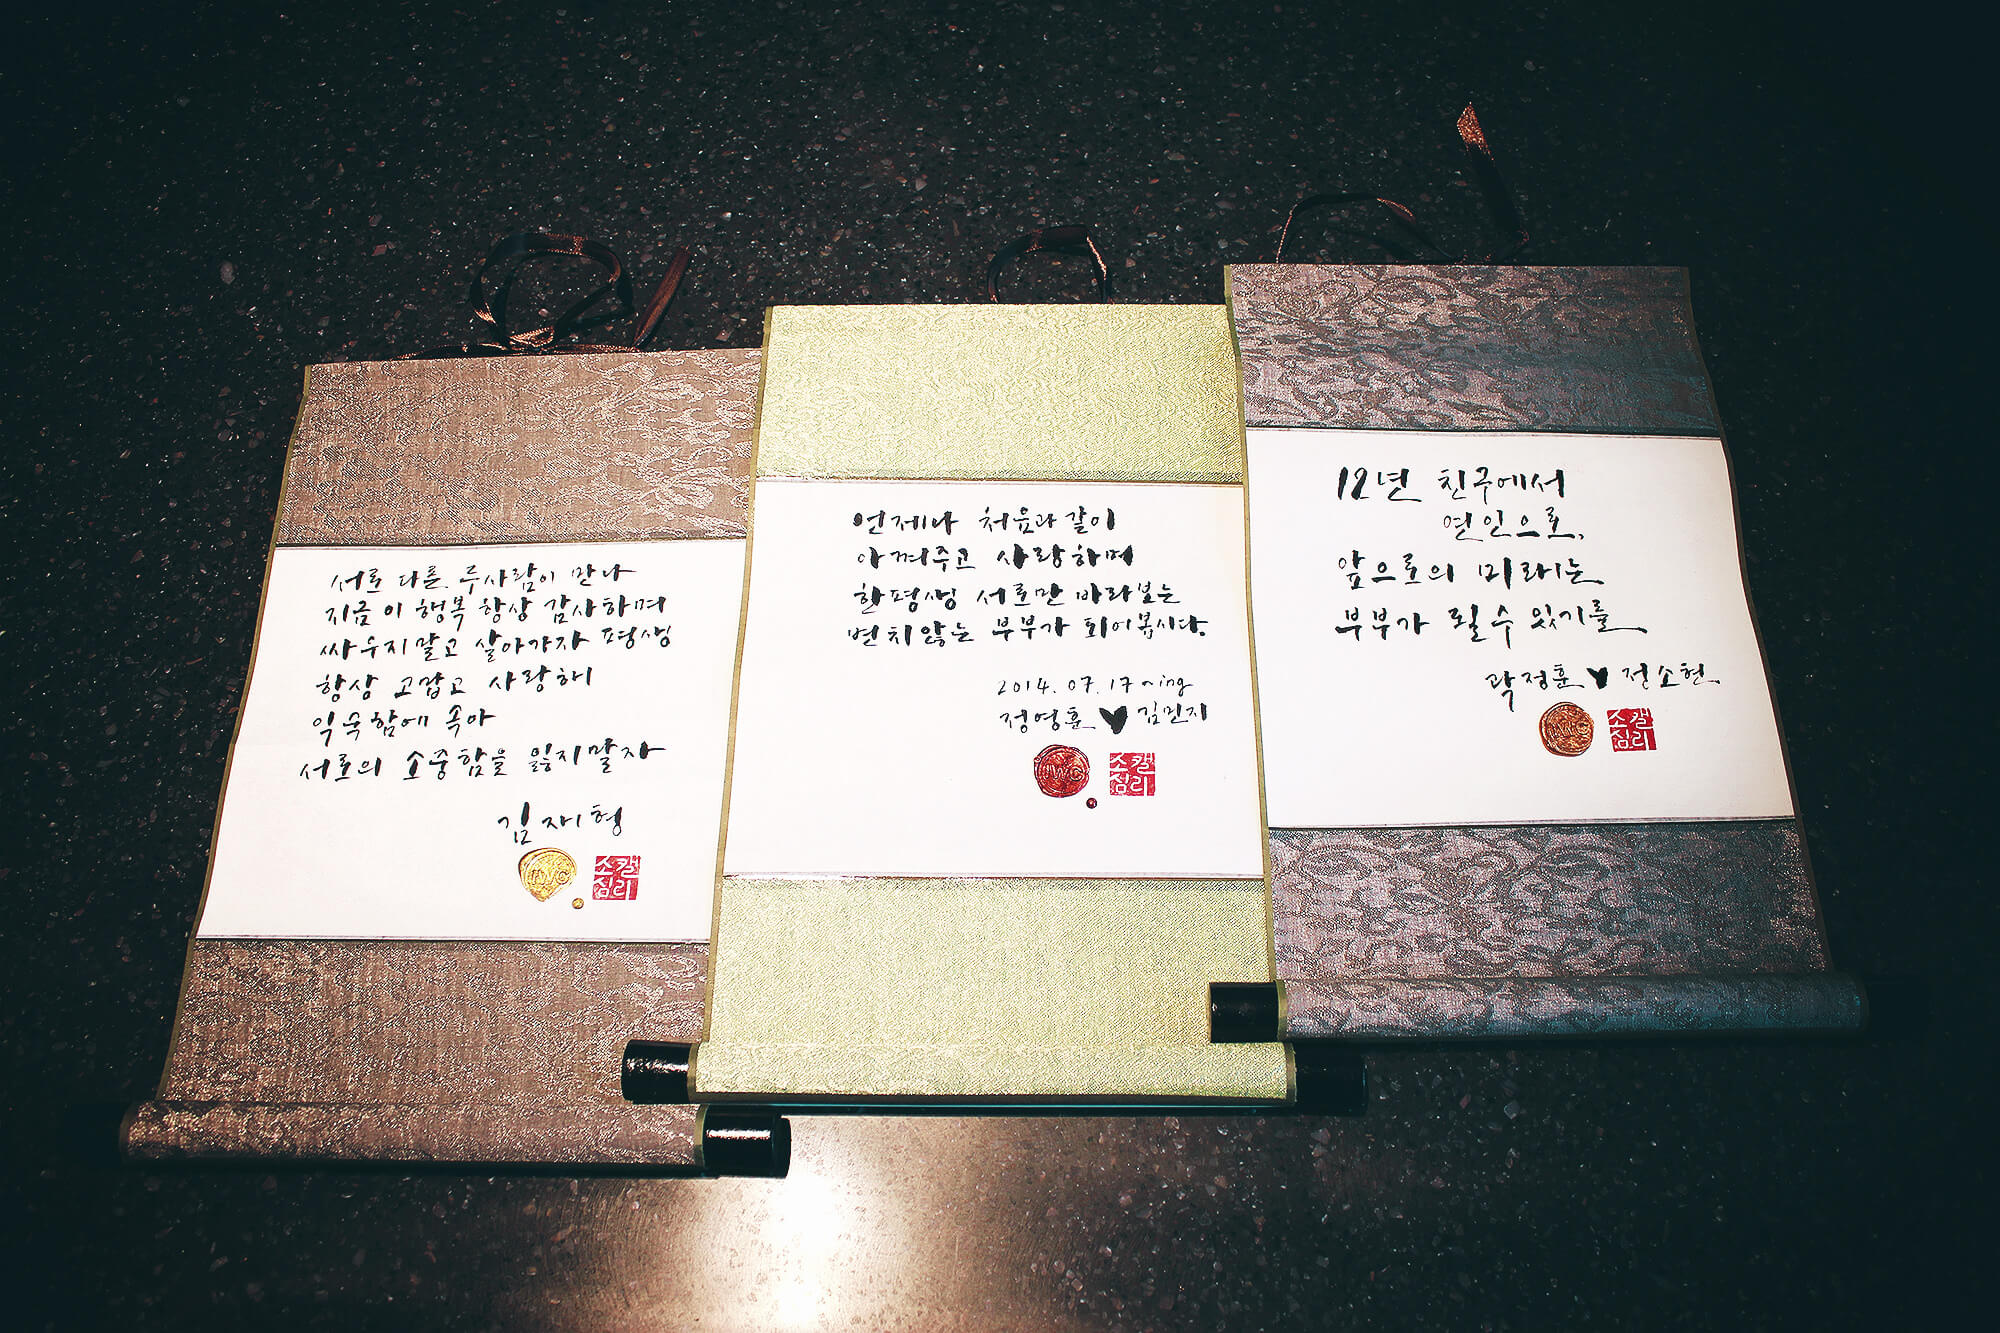 서로 다른 두사람이 만나
지금 이 행복 항상 감사하며
싸우지말고 살아가자 평생
항상 고맙고 사랑해
익숙함에 속아
서로의 소중함을 잃지말자
김재형
IWC
소캘
심리
언제나 처음과 같이
아껴주고 사랑하며
한평생 서로만 바라보는
변치않는 부부가 되어봅시다.
2014.07.17~ing
정영훈♥김민지
IWC
소캘
심리
12년 친구에서
연인으로,
앞으로의 미래는
부부가 될 수 있기를
곽정훈♥전소현.
IWC
소캘
심리